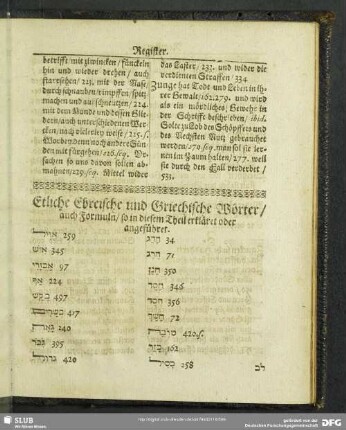 Register.
betrifft/mit zwincken/fünckeln
hin und wieder drehen/auch
starrsehen/223. mit der Nase/
durch schnauben/rümpffen/spitz
machen und aufschneutzen/224.
mit dem Munde und dessen Gliedern/auch unterschiedenen Wercken/nach vielerley weise/215.s.
Worbey denn noch andere Sünden mit fürgehen/226.seq. Ursachen so uns davon sollen abmahnen/229.seq. Mittel wider
das Laster/233. und wider die
verdienten Straffen/334
Zunge hat Tode und Leben in ihrer Gewalt/162.279. und wird
als ein mördliches Gewehr in
der Schrifft beschrieben/ibid.
Solte zu Lob des Schöpffers und
des Nechsten Nutz gebraucht
werden/270.seq. nun sol sie lernen im Zaum halten/277. weil
sie durch den Fall verderbet/
531.
Etliche Ebreische und Griechische Wörter/
auch Formuln/so in diesem Theil erkläret oder
angeführet.
259
איש 345
אכזרי 97
אף 224
בקש 497
417
240
גבר 395
420
הרב 34
הרב 71
חנן 350
חסד 346
חסד 356
חשך 72
420
162
158
לב
SLUB
Wir führen Wissen.
gefördert von der
Deutschen Forschungsgemeinschaft
DFG